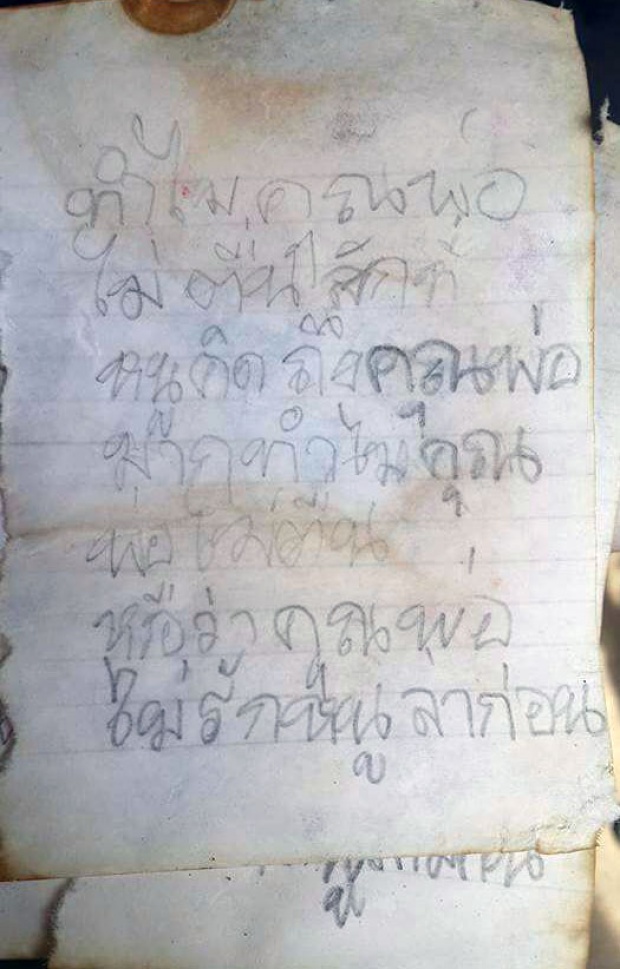 ทำไมคุณพ่อ
ไม่ตื่นสักที
หนูคิดถึงคุณพ่อ
มากทำไมคุณ
พ่อไม่ตื่น
หรือว่าคุณพ่อ
ไม่รักหนูลาก่อน